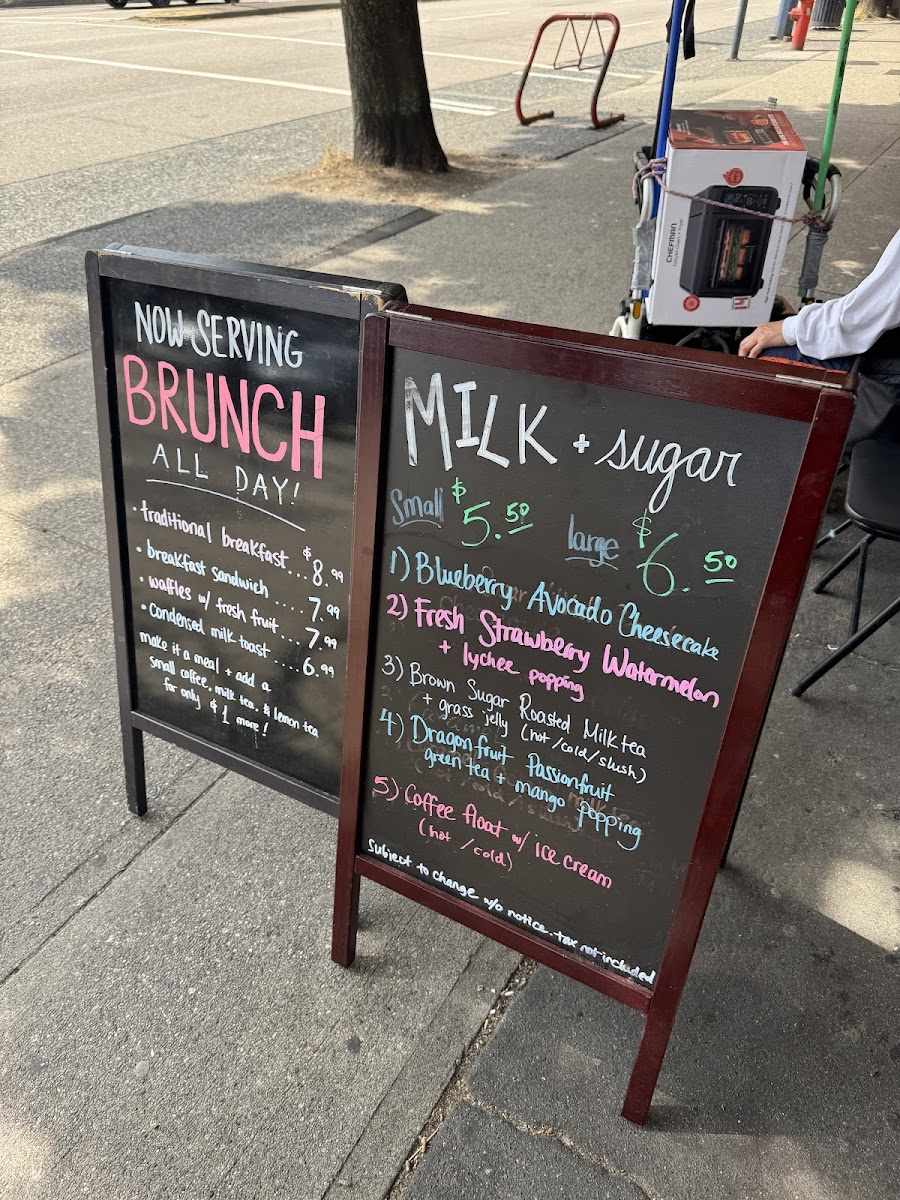 NOW SERVING
BRUNCH
ALL DAY!
• traditional breakfast... $8.99
• breakfast sandwich ..... 7.99
• waffles w/ fresh fruit... 7.99
• Condensed milk toast .... 6.99
make it a meal + add a
small coffee, milk tea, & lemon tea
for only $1 more!
MILK + sugar
Small $5.50 large $6.50
1) Blueberry Avocado Cheesecake
2) Fresh Strawberry Watermelon
+ lychee popping
3) Brown Sugar Roasted Milk tea
+ grass jelly (hot/cold/slush)
4) Dragonfruit Passionfruit
green tea + mango popping
5) Coffee float w/ ice cream
(hot/cold)
Subject to change w/o notice. tax not included
CHEFMAN